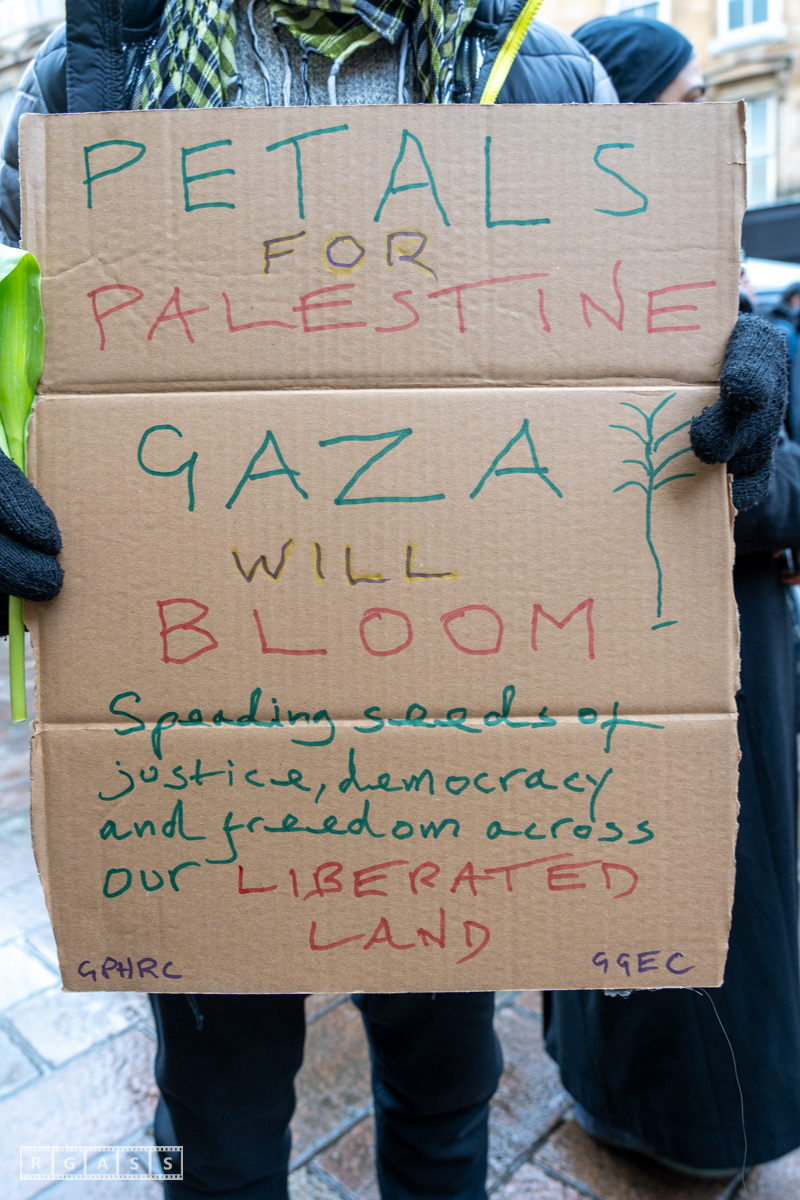 PETALS
FOR
PALESTINE
GAZA
WILL
BLOOM
Speading seeds of
justice, democracy
and freedom across
our LIBERATED
LAND
GPHRC
GGEC
RGASS